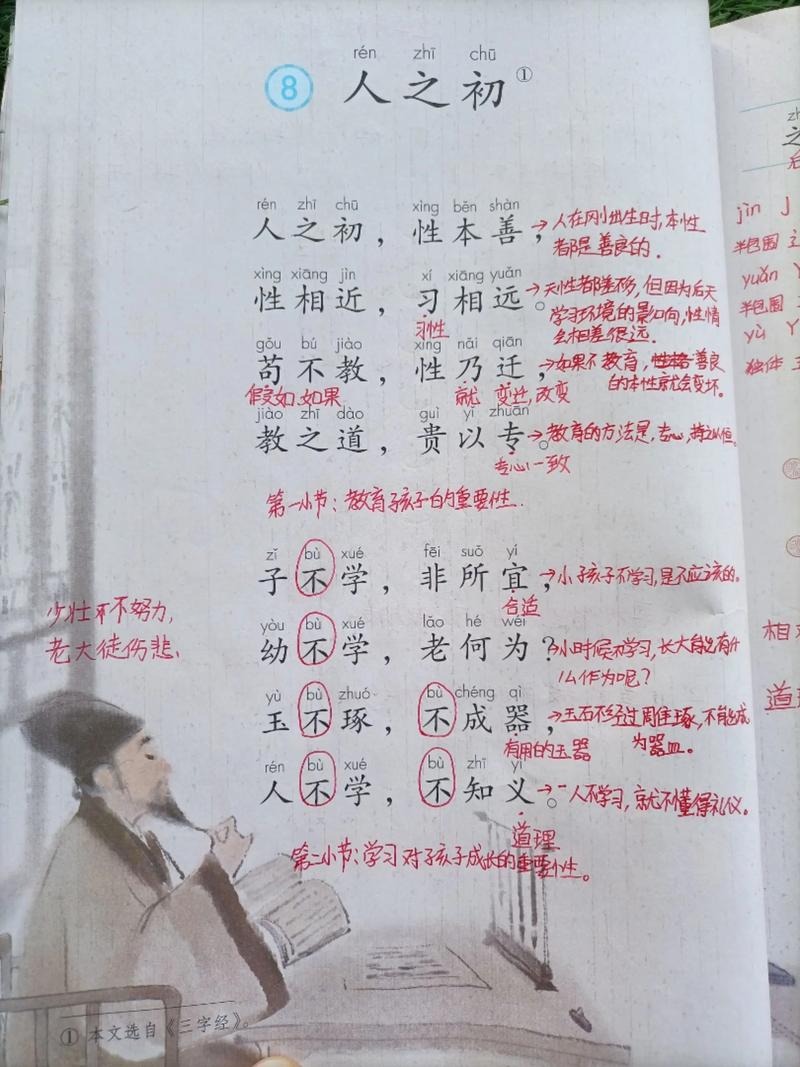 rén zhī chū
8 人之初①
rén zhī chū xìng běn shàn
人之初，性本善，→人在刚出生时,本性
都是善良的.
xìng xiāng jìn xí xiāng yuǎn
性相近，习相远。→天性都差不多，但因为后天
学习环境的影响向,性情
么相差很远.
习性
gǒu bú jiào xìng nǎi qiān
苟不教，性乃迁，→如果不教育,性格善良
的本性就会变坏。
假如.如果 就 变迁,改变
jiào zhī dào guì yǐ zhuān
教之道，贵以专。→教育的方法是,专心,持之以恒。
专心一致
第一小节:教育孩子的重要性.
zǐ bù xué fēi suǒ yí
子不学，非所宜，→小孩子不学习,是不应该的。
合适
少壮不努力,
老大徒伤悲、
yòu bù xué lǎo hé wéi
幼不学，老何为？→小时候不学习,长大能有什
么作为呢?
yù bù zhuó bù chéng qì
玉不琢，不成器，→玉石不经过周隹琢,不能成
为器皿。
有用的玉器
rén bù xué bù zhī yì
人不学，不知义。→人不学习,就不懂得礼仪。
道理
第二小节:学习对孩子成长的重要性。
① 本文选自《三字经》。
jìn
半包围
yuǎn
半包围
yù
独体
相
道